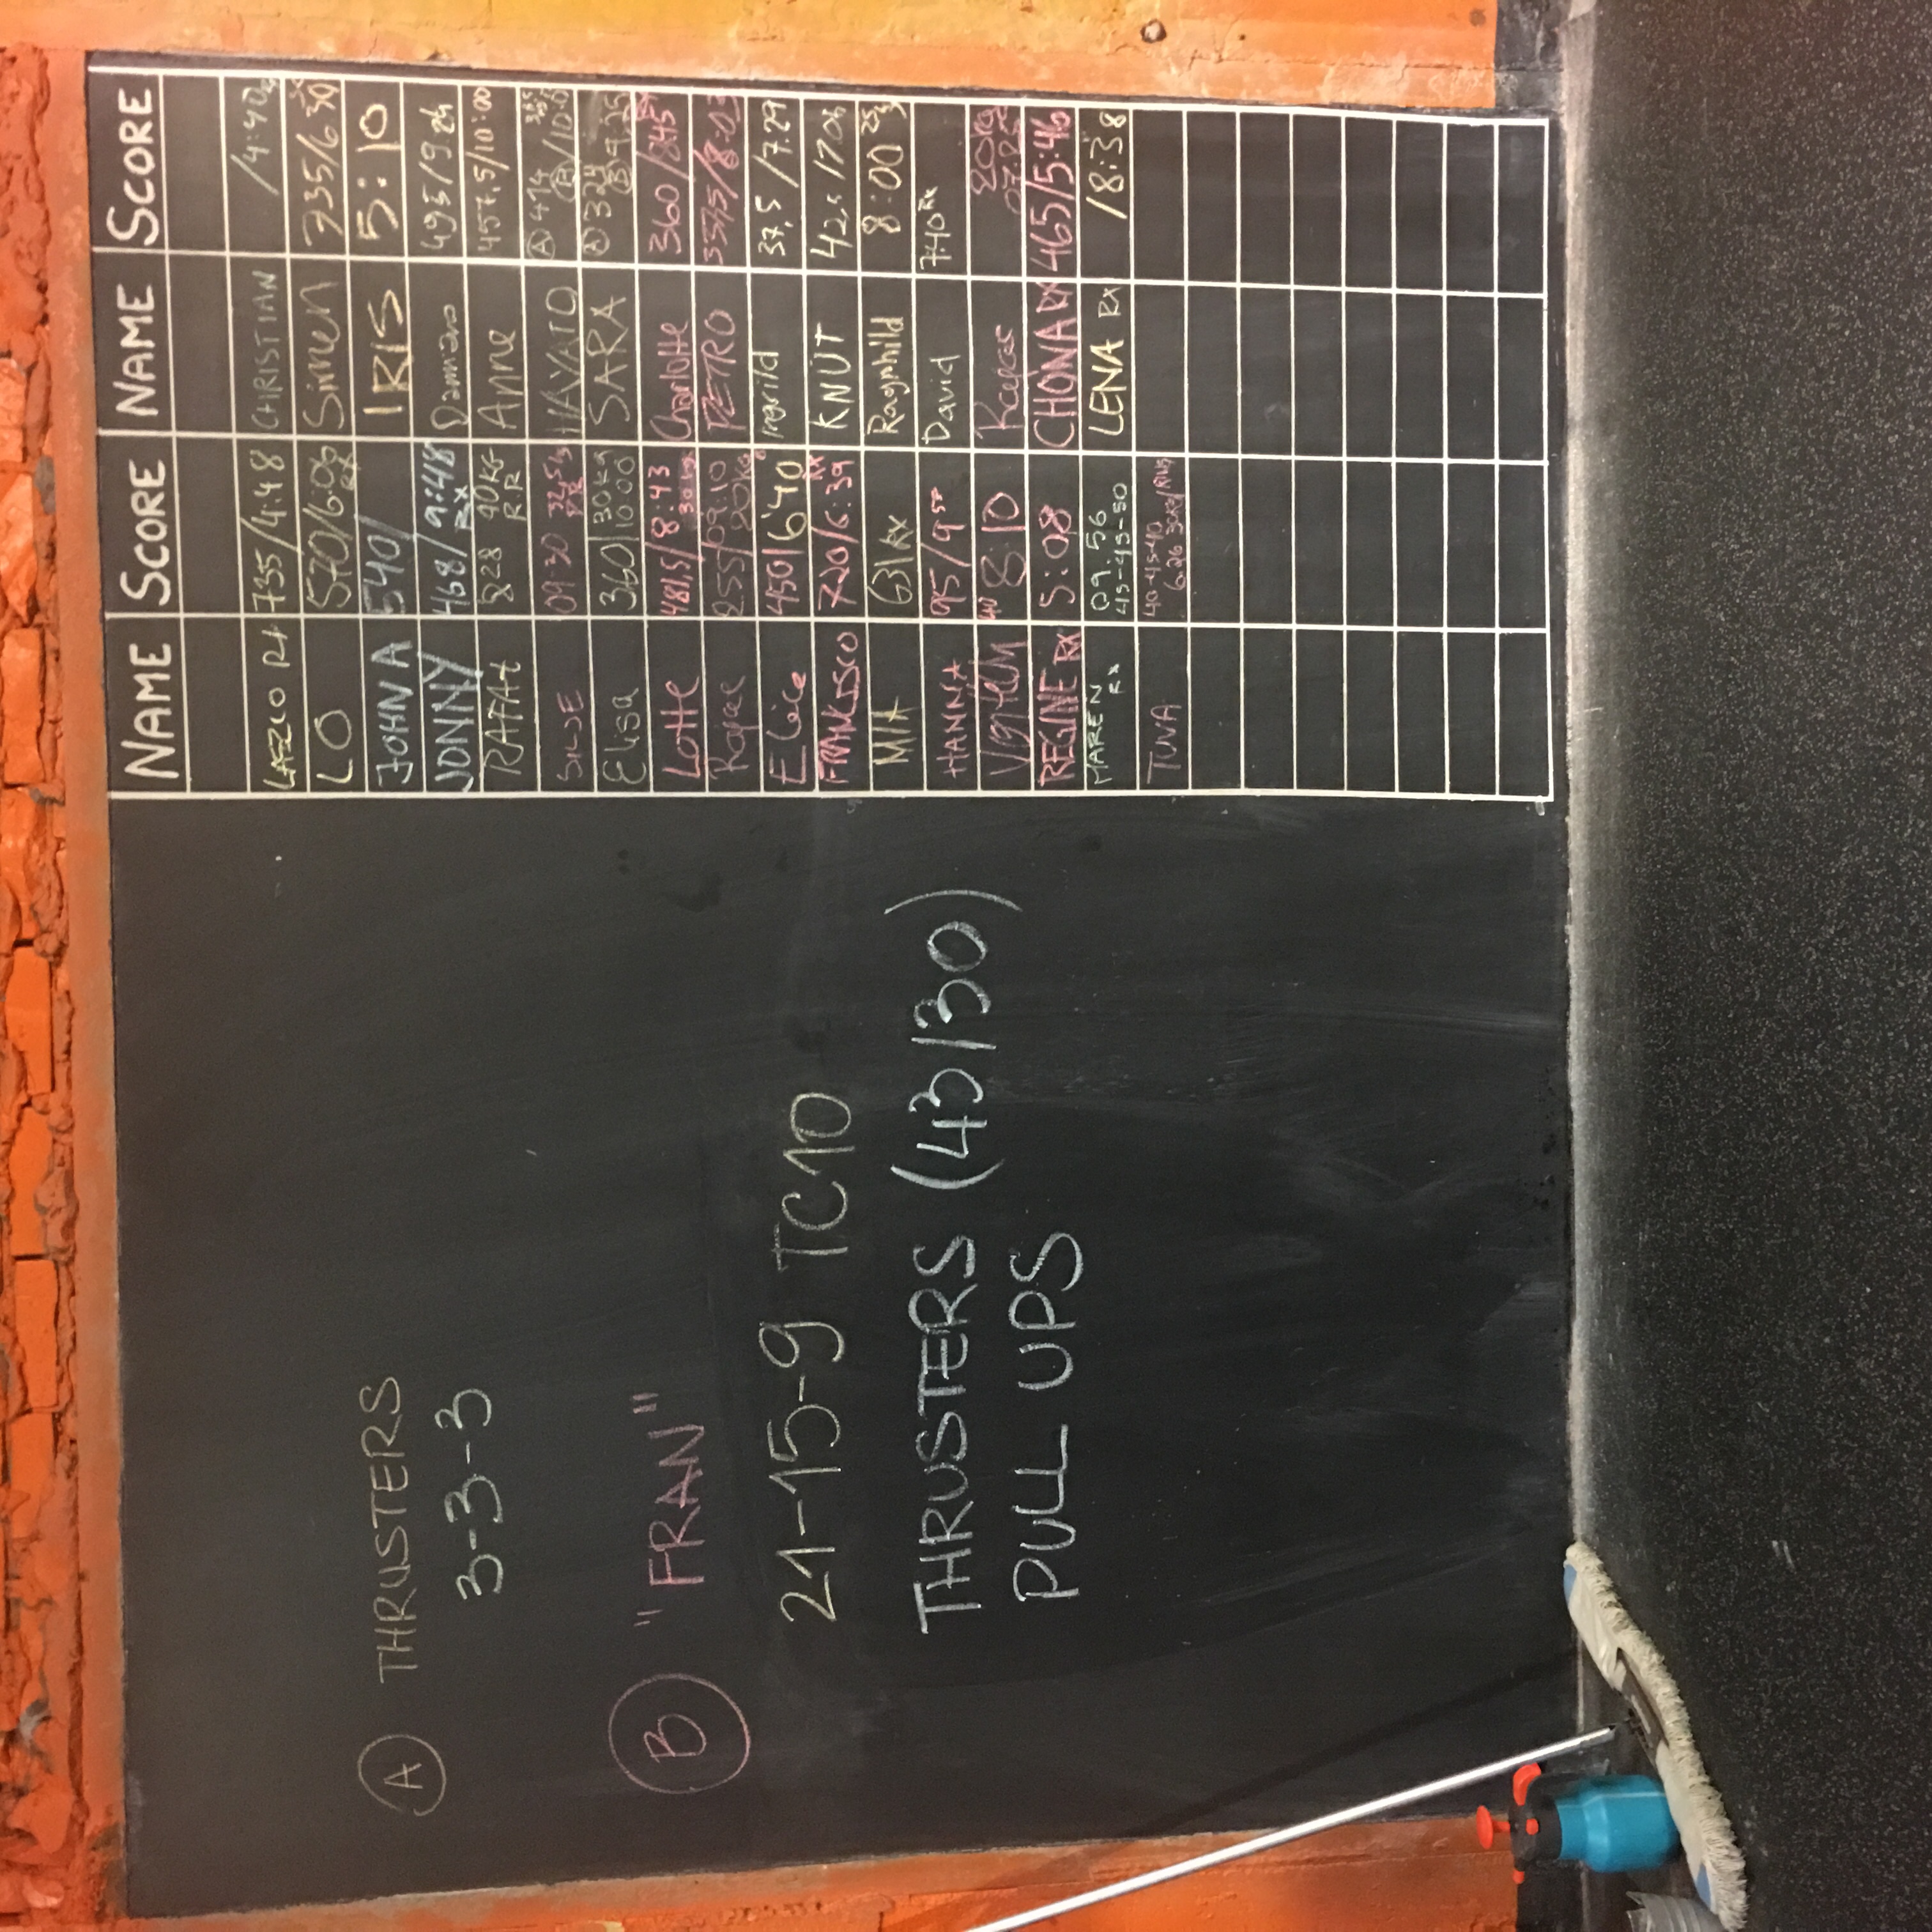 A THRUSTERS
3-3-3
B "FRAN"
21-15-9 TC10
THRUSTERS (43/30)
PULL UPS
NAME SCORE NAME SCORE
LAZLO RX 735/4:48 CHRISTIAN /4:40
LO 570/6:06 RX Simen 735/6:30
JOHN A 540/ IRIS 5:10
JONNY 468/9:48 RX Damiano 495/9.24
RAFAL 8:28 40KG RR Anne 457,5/10:00
SILJE 09:30 32,5kg HAVATO A 414 B /10:0
Elisa 360/30kg 10:00 SARA A 324 B 9:25
Lotte 481,5/8:43 30kg Charlotte 360/8:45
255/09:10 20kg PETRO 337,5/8:03
Elice 450/6'40 Ingrild 37,5/7:29
FRANCISCO 720/6:39 RX KNUT 42,5/7.06
MIA 631 RX Ragnhild 8:00
HANNA 95/9 David 7:40 RX
8:10 20kg
REGINE RX 5:08 CHONA RX 465/5:46
MAREN RX 09.56 45-45-50 LENA RX /8:38
TUVA 40-45-40 6:26 30kg/RING